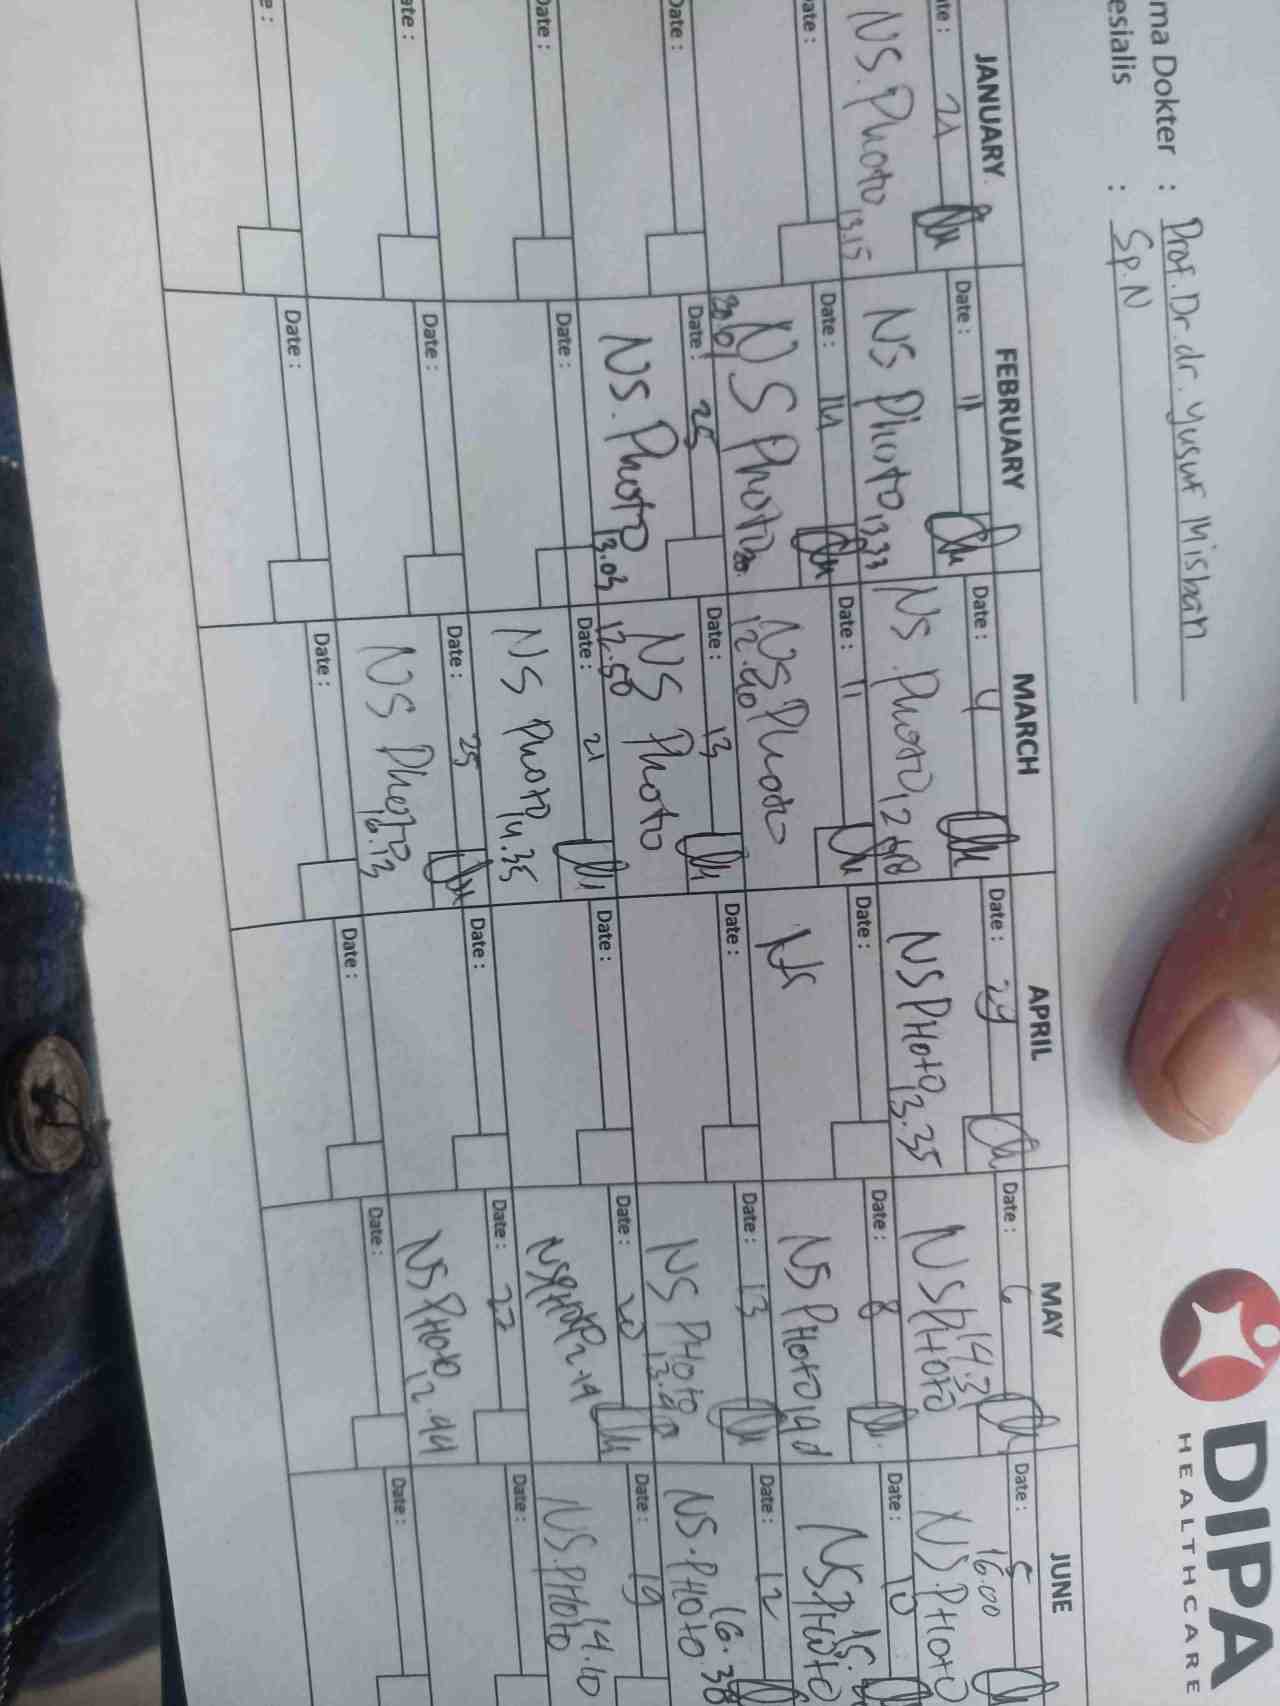 DIPA
HEALTHCARE
ma Dokter : Prof. Dr. dr. Yusuf Misban
esialis : Sp.N
JANUARY FEBRUARY MARCH APRIL MAY JUNE
ate : 21 Date : 11 Date : 4 Date : 29 Date : 6 Date : 5
NS. Photo 13.15 NS Photo 13.33 NS Photo NS PHOTO 13.35 NS PHOTO 14.31 NS.PHOTO 16.00
ate : Date : 14 Date : 11 Date : Date : 8 Date : 10
NS Photo NS Photo 12.40 Ns NS PHOTO NS.PHOTO
Date : Date : 25 Date : 13 Date : Date : 13 Date : 12
NS. Photo 13.03 NS Photo 12.50 NS PHOTO NS.PHOTO 16.38
Date : Date : Date : 21 Date : Date : 20 Date : 19
NS Photo 14.35 NS PHOTO NS.PHOTO 14.10
ate : Date : Date : 25 Date : Date : 22 Date :
NS Photo 16.13 NS PHOTO 12.44
e : Date : Date : Date : Date : Date :